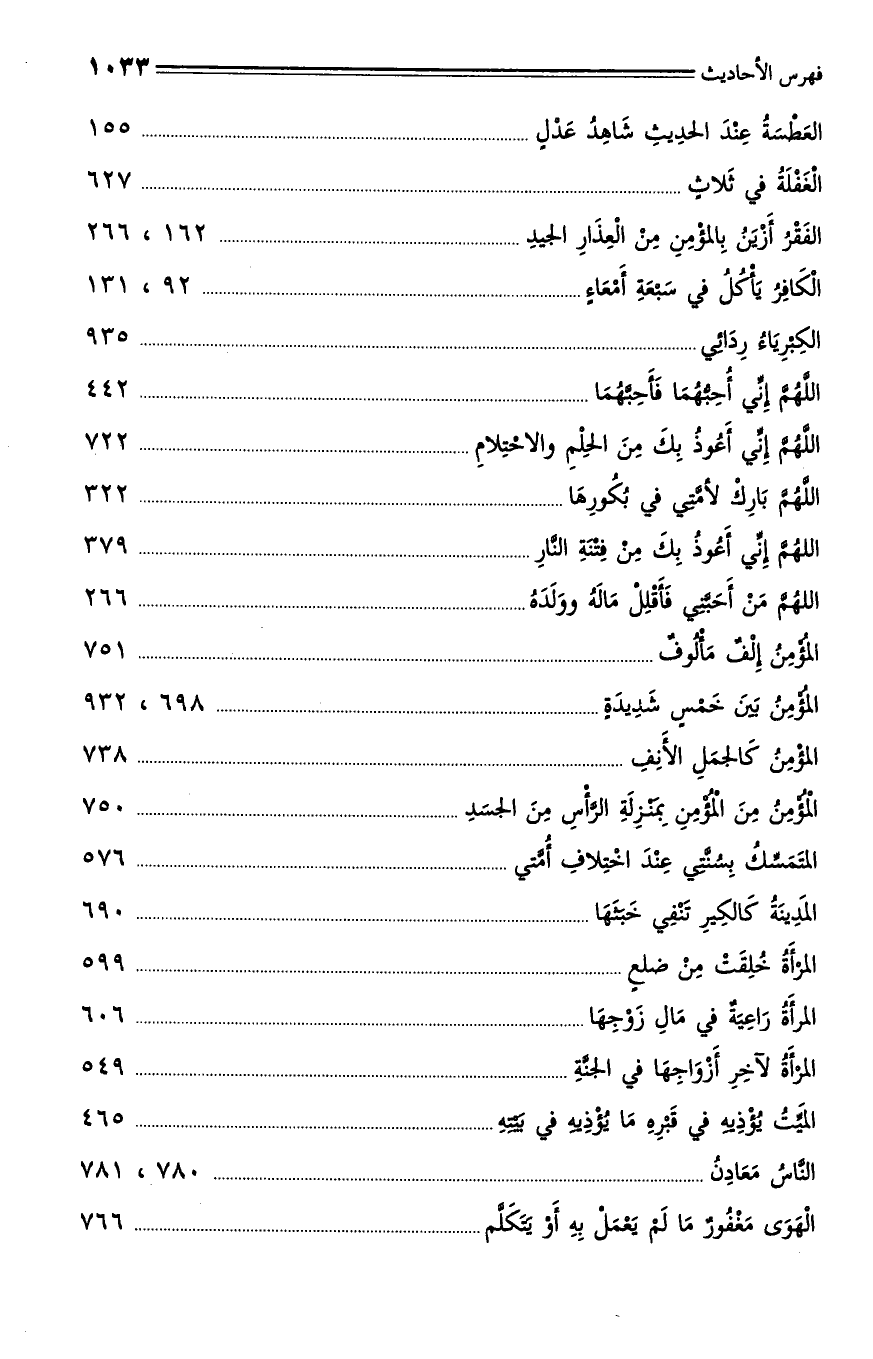 فهرس الأحاديث ١٠٣٣
العَطْسَةُ عِنْدَ الحديثِ شَاهِدُ عَدْلٍ ١٥٥
الْغَفْلَةُ في ثَلاثٍ ٦٢٧
الفَقْرُ أَزْيَنُ بِالمؤْمِنِ مِنْ الْعِذَارِ الجيدِ ١٦٢ ، ٢٦٦
الْكَافِرُ يَأْكُلُ في سَبْعَةِ أَمْعَاءٍ ٩٢ ، ١٣١
الكِبْرِيَاءُ رِدَائِي ٩٣٥
اللَّهُمَّ إِنِّي أُحِبُّهُمَا فَأَحِبَّهُمَا ٤٤٢
اللَّهُمَّ إِنِّي أَعُوذُ بِكَ مِنَ الحِلْمِ والاحْتِلامِ ٧٢٢
اللَّهُمَّ بَارِكْ لأمَّتِي في بُكُورِهَا ٣٢٢
اللهُمَّ إِنِّي أَعُوذُ بِكَ مِنْ فِتْنَةِ النَّارِ ٣٧٩
اللهُمَّ مَنْ أَحَبَّنِي فَأَقْلِلْ مَالَهُ ووَلَدَهُ ٢٦٦
المُؤْمِنُ إِلْفٌ مَأْلُوفٌ ٧٥١
المُؤْمِنُ بَينَ خَمْسٍ شَدِيدَةٍ ٦٩٨ ، ٩٣٢
المؤْمِنُ كَالجمَلِ الأَنِفِ ٧٣٨
الْمُؤْمِنُ مِنَ الْمُؤْمِنِ بِمَنْزِلَةِ الرَّأْسِ مِنَ الجسَدِ ٧٥٠
المتَمَسِّكُ بِسُنَّتِي عِنْدَ اخْتِلافِ أُمَّتي ٥٧٦
المَدِينَةُ كَالكِيرِ تَنْفِي خَبَثَهَا ٦٩٠
المرْأَةُ خُلِقَتْ مِنْ ضلعٍ ٥٩٩
المرأَةُ رَاعِيَةٌ في مَالِ زَوْجِهَا ٦٠٦
المرْأَةُ لآخِرِ أَزْوَاجِهَا في الجنَّةِ ٥٤٩
المَيِّتُ يُؤْذِيهِ في قَبْرِهِ مَا يُؤْذِيهِ في بَيْتِهِ ٤٦٥
النَّاسُ مَعَادِنُ ٧٨٠ ، ٧٨١
الْهَوَى مَغْفُورٌ مَا لَمْ يَعْمَلْ بِهِ أَوْ يَتَكَلَّم ٧٦٦